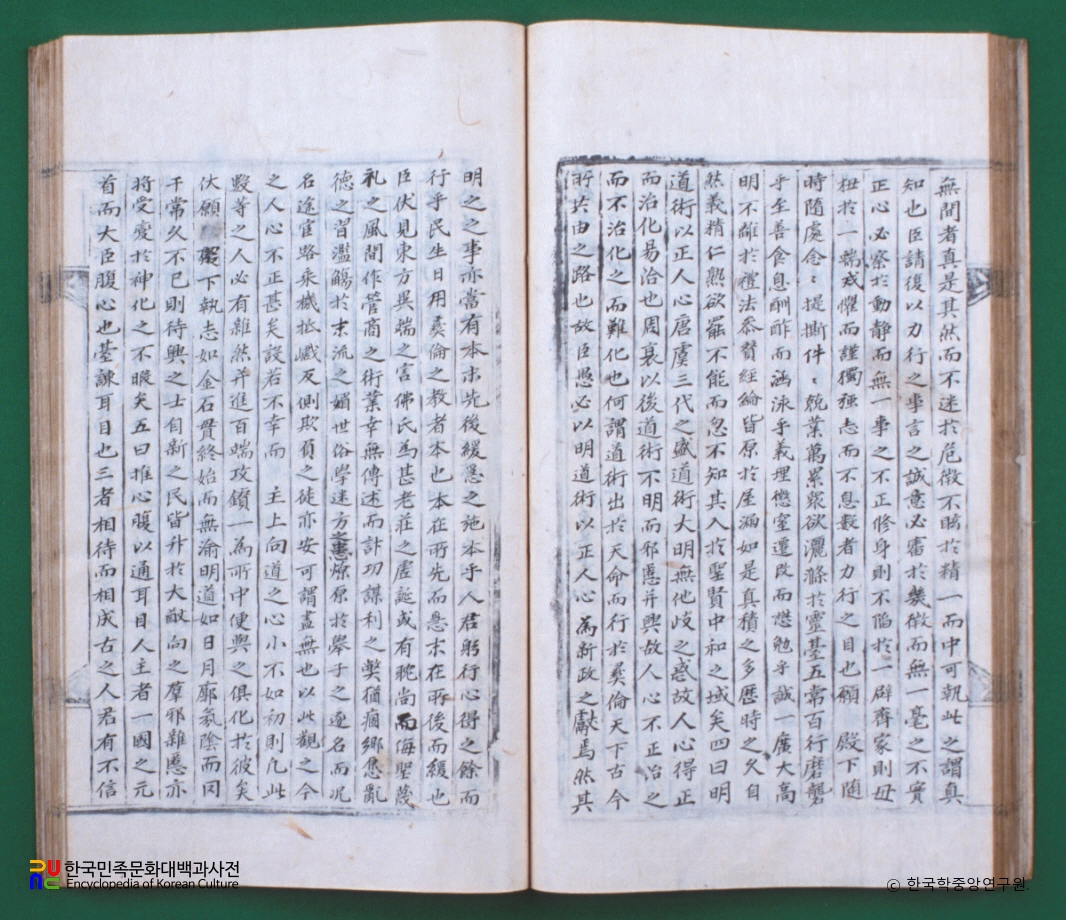 無間者真是其然而不迷於危微不眩於精一而中可執此之謂真
知也臣請復以力行之事言之誠意必審於幾微而無一毫之不實
正心必察於動静而無一事之不正修身則不陷於一辟齊家則毋
枉於一端戒懼而謹獨强志而不息數者力行之目也願 殿下随
時随處念〻提撕件〻兢業萬累衆欲灑滌於靈基五常百行磨礱
乎至善食息酬酢而涵泳乎義理懲窒遷改而懋勉乎誠一廣大高
明不離於禮法叅賛經綸皆原於屋漏如是真積之多歷時之久自
然義精仁熟欲罷不能而忽不知其入於聖賢中和之域矣四曰明
道術以正人心唐虞三代之盛道術大明無他歧之惑故人心得正
而治化易洽也周衰以後道術不明而邪慝并興故人心不正治之
而不治化之而難化也何謂道術出於天命而行於彛倫天下古今
所共由之路也故臣愚必以明道術以正人心為新政之獻焉然其
明之之事亦當有本末先後緩急之施本乎人君躬行心得之餘而
行乎民生日用彛倫之教者本也本在所先而急末在所後而緩也
臣伏見東方異端之害佛氏為甚老莊之虛誕或有耽尚而侮聖蔑
礼之風間作管商之術業幸無傳述而計功謀利之獘猶痼鄉愿亂
德之習濫觴於末流之媚世俗學迷方之患燎原於舉子之逐名而况
名途宦路乘機抵巇反側欺負之徒亦安可謂盡無也以此觀之今
之人心不正甚矣設若不幸而 主上向道之心小不如初則凡此
數等之人必有雖然并進百端攻鑽一為所中便與之俱化於彼矣
伏願 殿下執志如金石貫終始而無渝明道如日月廓氛陰而罔
干常久不已則待興之士自新之民皆升於大猷向之羣邪雖慝亦
將受變於神化之不暇矣五曰推心腹以通耳目人主者一國之元
首而大臣腹心也臺諫耳目也三者相待而相成古之人君有不信
한국민족문화대백과사전
Encyclopedia of Korean Culture
© 한국학중앙연구원.